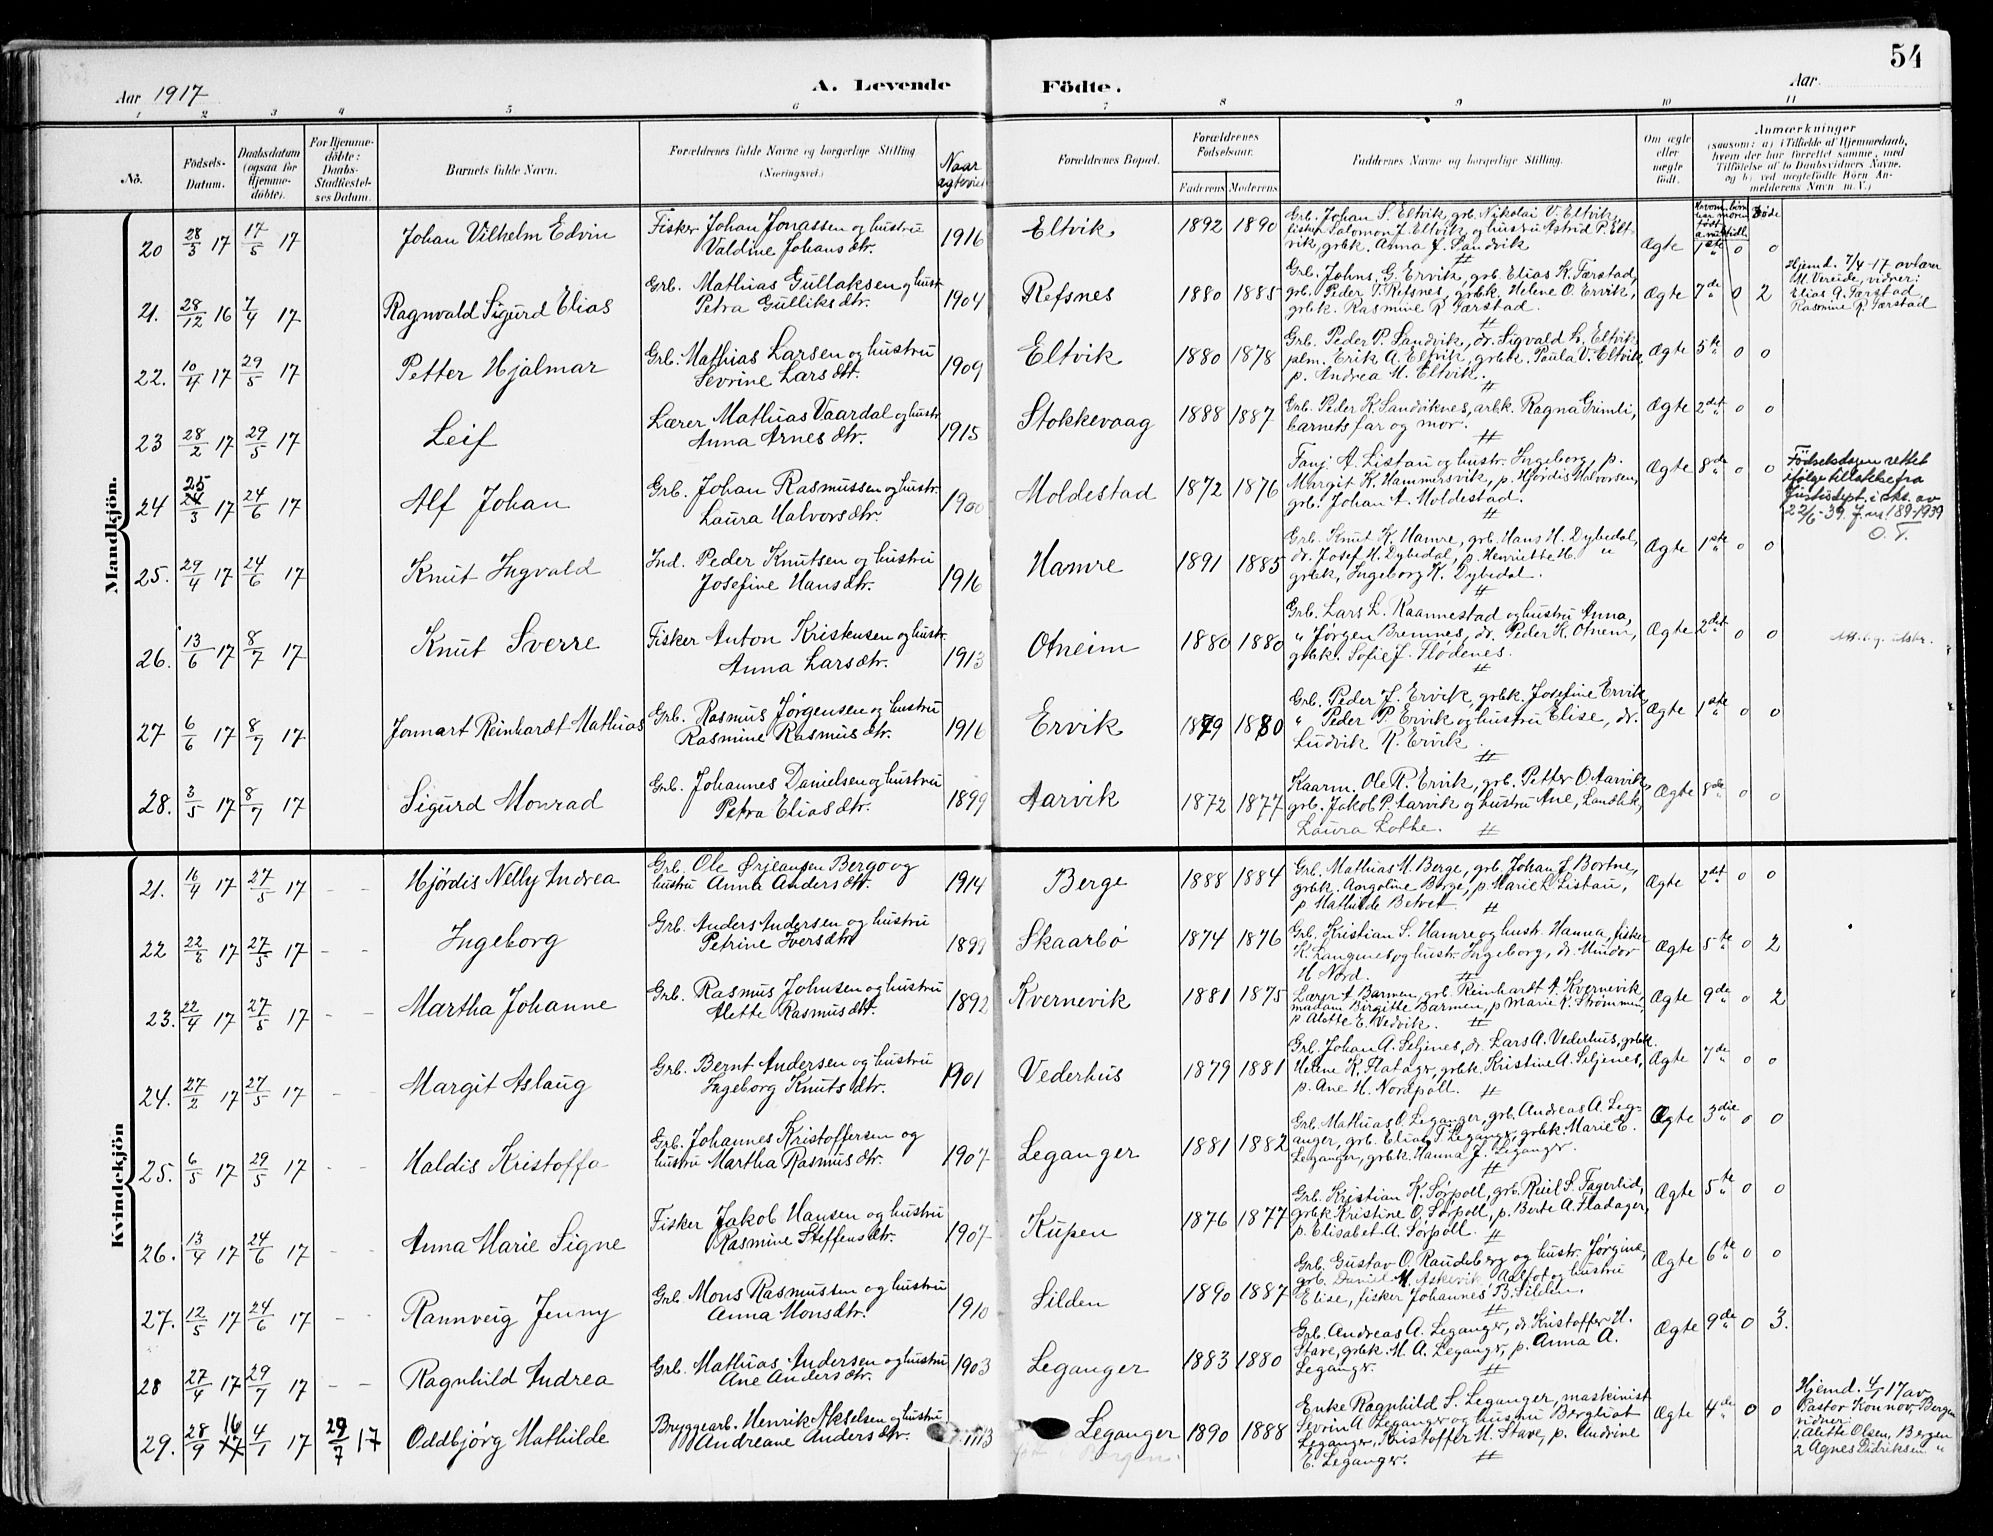 54
Aar 1917
A. Levende
Födte.
Aar
1 2 3 4 5 6 7 8 9 10 11
No.
Födsels-Datum.
Daabsdatum (ogsaa för Hjemme-döbte).
For Hjemme-döbte: Daabs-Stadfæstel-ses Datum.
Barnets fulde Navn.
Forældrenes fulde Navne og borgerlige Stilling (Næringsvei.)
Naar egteviet
Forældrenes Bopæl.
Forældrenes Fødselsaar.
Faderens Moderens
Faddernes Navne og borgerlige Stilling.
Om ægte eller uægte født.
Anmærkninger
(saasom: a) i Tilfælde af Hjemmedaab, hvem der har forrettet samme, med Tilföielse af to Daabsvidners Navne, og b) ved uægtefödte Börn An-melderens Navn m. V.)
Mandkjön.
20 28/3 17 17/5 17 Johan Vilhelm Edvin Fisker Johan Jonassen og hustru
Valdine Johansdtr. 1916 Eltvik 1892 1890 Grb. Johan S. Eltvik, grb. Nikolai V. Eltvik,
fisker Salomon J. Eltvik og hustru Astrid P. Elt-
vik, grbk. Anna J. Sandvik Ægte 1ste 0 0
21. 28/12 16 7/4 17 Ragnvald Sigurd Elias Grb. Mathias Gullaksen og hustr.
Petra Gulliksdtr. 1904 Refsnes 1880 1885 Grb. Johns. G. Ervik, grb. Elias K. Tærstad,
grb. Peder T. Refsnes, grbk. Helene O. Ervik,
grbk. Rasmine R Tærstad. Ægte 7de 0 2 Hjemd. 7/4-17 av lærer
M. Vereide, vidner:
Elias A. Tærstad
Rasmine R. Tærstad
22. 10/4 17 29/5 17 Petter Hjalmar Grb. Mathias Larsen og hustru
Sevrine Larsdtr. 1909 Eltvik 1880 1878 Grb. Peder P. Sandvik, dr. Sigvald L. Eltvik
plm. Erik A. Eltvik, grbk. Paula V. Eltvik,
p. Andrea M. Eltvik. Ægte 5te 0 0
23 28/2 17 29/5 17 Leif Lærer Mathias Vaardal og hustr.
Anna Arnesdtr. 1915 Stokkevaag 1888 1887 Grb. Peder K. Sandviknes, arbk. Ragna Grimli,
barnets far og mor. Ægte 2det 0 0
24 25 24/3 17 24/6 17 Alf Johan Grb. Johan Rasmussen og hustr.
Laura Halvorsdtr. 1900 Moldestad 1872 1876 A. Listau og hustr. Ingeborg, p.
Margit K. Hammersvik, p. Hjørdis Halvorsen,
grb. Johan A. Moldestad. Ægte 8de 0 0 Födselsdagen rettet
ifølge tillatelse fra
Justisdept. i skr. av
22/6-39. J.nr. 189-1939
O. T.
25. 29/4 17 24/6 17 Knut Ingvald Ind. Peder Knutsen og hustru
Josefine Hansdtr. 1916 Hamre 1891 1885 Grb. Knut K. Hamre, grb. Hans H. Dybedal,
dr. Josef H. Dybedal, p. Henriette H. "
grbk. Ingeborg K. Dybedal. Ægte 1ste 0 0
26. 13/6 17 8/7 17 Knut Sverre Fisker Anton Kristensen og hustr.
Anna Larsdtr. 1913 Otneim 1880 1880 Grb. Lars L. Raannestad og hustru Anna,
" Jørgen Bremnes, dr. Peder K. Otneim,
grbk. Sofie J. Flødenes. Ægte 2det 0 0
27 6/6 17 8/7 17 Jonnart Reinhardt Mathias Grb. Rasmus Jørgensen og hustru
Rasmine Rasmusdtr. 1916 Ervik 1879 1880 Grb. Peder J. Ervik, grbk. Josefine Ervik,
" Peder P. Ervik og hustru Elise, dr.
Ludvik R. Ervik. Ægte 1ste 0 0
28. 3/5 17 8/7 17 Sigurd Monrad Grb. Johannes Danielsen og hustru
Petra Eliasdtr. 1899 Aarvik 1872 1877 Kaarm. Ole R. Ervik, grb. Petter O. Aarvik,
grb. Jakob P. Aarvik og hustru Ane, Landlik,
Laura Lothe. Ægte 8de 0 0
Kvindekjön
21. 16/4 17 27/5 17 - - Hjørdis Nelly Andrea Grb. Ole Ørjeansen Bergo og
hustru Anna Andersdtr. 1914 Berge 1888 1884 Grb. Mathias M. Berge, grb. Johan J. Bortne,
grbk. Angoline Berge, p. Marie L. Listau,
p. Mathilde Betvet Ægte 2det 0 0
22 22/6 17 27/5 17 - - Ingeborg Grb. Anders Andersen og hustru
Petrine Iversdtr 1899 Skaarbø 1874 1876 Grb. Kristian S. Hamre og hustr. Hanna, fisker
K. Langnes og hustr. Ingeborg, dr. Mindor
H. Nord. Ægte 5te 0 2
23. 22/4 17 27/5 17 - - Martha Johanne Grb. Rasmus Johnsen og hustru
Alette Rasmusdtr. 1892 Kvernevik 1881 1875 Lærer A. Barmen, grb. Reinhardt A. Kvernevik,
madam Birgitte Barmen, p Marie K. Strømmen,
p Alette E. Vedvik. Ægte 9de 0 2
24. 27/2 17 27/5 17 - - Margit Aslaug Grb. Bernt Andersen og hustru
Ingeborg Knutsdtr. 1901 Vederhus 1879 1881 Grb. Johan A. Seljenes, dr. Lars A. Vederhus, grbk.
Helene K. Flatager, grbk. Kristine A. Seljenes,
p. Ane H. Nordpoll. Ægte 7de 0 0
25. 6/5 17 29/5 17 - - Haldis Kristoffa Grb. Johannes Kristoffersen og
hustru Martha Rasmusdtr. 1907 Leganger 1881 1882 Grb. Mathias O. Leganger, grb. Andreas A. Leg-
anger, grb. Elias T. Leganger, grbk. Marie E.
Leganger, grbk. Hanna J. Leganger. Ægte 3die 0 0
26. 13/4 17 24/6 17 - - Anna Marie Signe Fisker Jakob Hansen og hustru
Rasmine Steffensdtr. 1907 Kupen 1876 1877 Grb. Kristian K. Sørpoll, grb. Reiel S. Fagerlid,
grbk Kristine O. Sørpoll, p. Berte A. Fladager,
p. Elisabet A. Sørpoll. Ægte 5te 0 0
27. 12/5 17 24/6 17 - - Rannveig Jenny Grb. Mons Rasmussen og hustru
Anna Monsdtr. 1910 Silden 1890 1887 Grb. Gustav O. Raudeberg og hustr. Jørgine,
grb. Daniel M. Askevik, Aalfot og hustru
Elise, fisker Johannes B. Silden. Ægte 6te 0 0
28 27/4 17 29/7 17 - - Ragnhild Andrea Grb. Mathias Andersen og hustru
Ane Andersdtr. 1903 Leganger 1883 1880 Grb. Andreas A. Leganger, dr. Kristoffer H.
Stave, grbk. M. A. Leganger, p. Anna A.
Leganger. Ægte 9de 0 3.
29. 28/9 16 4/1 17 29/7 17 Oddbjørg Mathilde Bryggearb. Henrik Akselsen og hustru
Andreane Andersdtr. 1913 Leganger 1890 1888 Enke Ragnhild S. Leganger, maskinist
Sevrin A Leganger og hustru Bergliot
Leganger, Kristoffer H. Stave, p. Andrine
E. Leganger. Ægte 4de 0 0 Hjemd. 4/1 17 av
Pastor Konnov, Bergen
vidner:
1 Alette Olsen, Bergen
2 Agnes Didriksen "
Bergen.